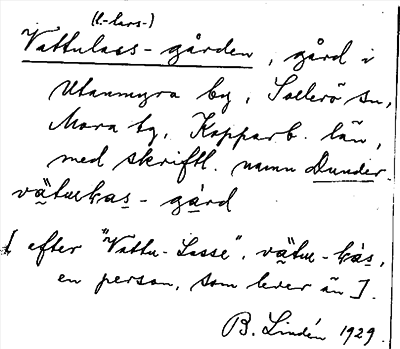 (l.-lars-)
Vattulass-gården, gård i
Utanmyra by, Sollerö sn,
Mora tg, Kopparb. län,
med skriftl. namn Dunder.
gård
[efter "Vattu-Lasse",
en person, som lever än].
B. Lindén 1929.